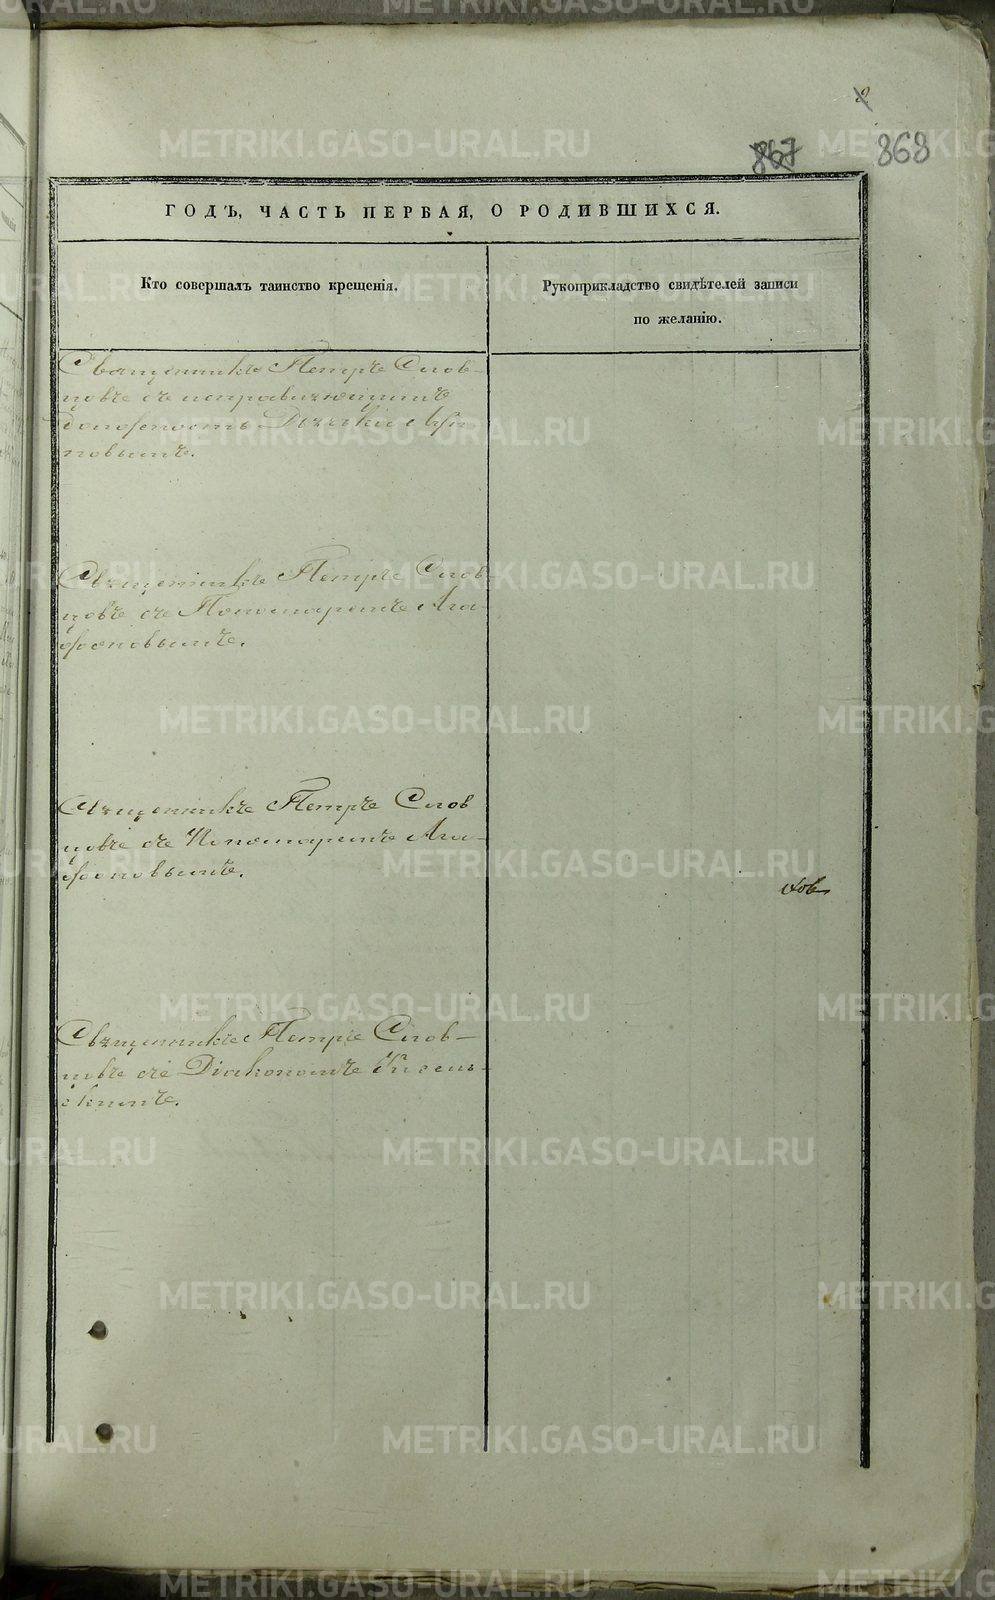 2
867 868
ГОДЪ, ЧАСТЬ ПЕРВАЯ, О РОДИВШИХСЯ.
Кто совершалъ таинство крещенія.
Рукоприкладство свидѣтелей записи
по желанію.
Священникъ Петръ Слов-
цовъ съ исправляющимъ
должность Дьячка
повымъ.
Священникъ Петръ Слов-
цовъ съ Пономаремъ Ага-
фоновымъ.
Священникъ Петръ Слов
цовъ съ Пономаремъ Ага-
фоновымъ.
Священникъ Петръ Слов-
цовъ съ Діакономъ
скимъ.
METRIKI.GASO-URAL.RU